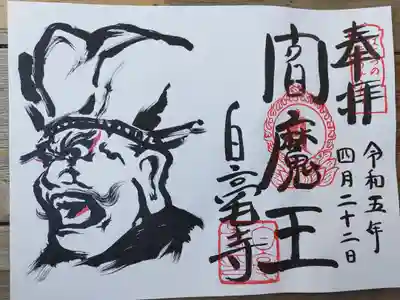 奉拝
令和五年
四月二十二日
閻魔王
白竜寺